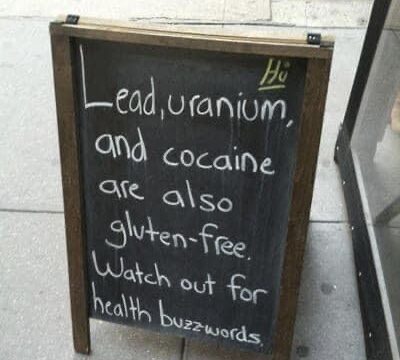 Hi
Lead, uranium,
and cocaine
are also
gluten-free.
Watch out for
health buzzwords.